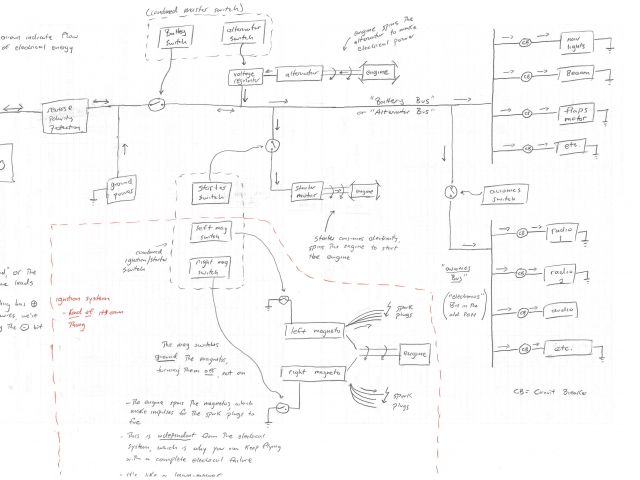 (combined master switch)
Battery
switch
alternator
switch
engine spins the
alternator to make
electrical power
indicate flow
of electrical energy
voltage
regulator
alternator
engine
nav
lights
CB
Beacon
CB
flaps
motor
CB
etc.
CB
reverse
polarity
protection
"Battery Bus"
or "Alternator Bus"
ground
power
starter
switch
left mag
switch
right mag
switch
starter
motor
engine
avionics
switch
starter consumes electricity,
spins the engine to start
the engine
combined
ignition/starter
switch
"avionics
Bus"
("electronics"
Bus in the
old
CB
radio
1
CB
radio
2
CB
audio
CB
etc.
ignition system
- kind of its own
thing
or the
leads
bus ⊕
we're
the ⊖ bit
left magneto
right magneto
spark
plugs
engine
spark
plugs
The mag switches
ground the magnetos,
turning them off, not on
CB = Circuit Breaker
- The engine spins the magnetos which
make impulses for the spark plugs to
fire
- This is independent from the electrical
system, which is why you can keep flying
with a complete electrical failure
- It's like a